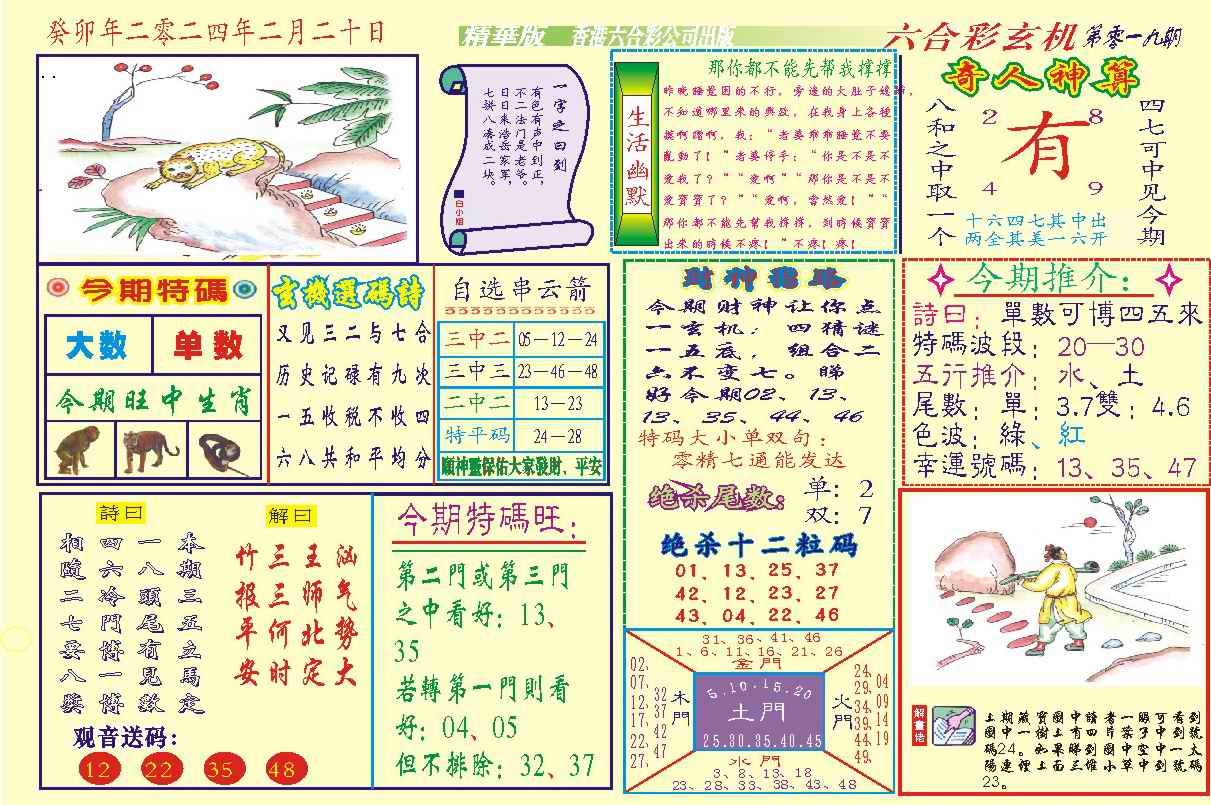 癸卯年二零二四年二月二十日
精華版 香港六合彩公司出版
六合彩玄机 第零一九期
一字之曰列
有色有声中到正，
不二法门是老爷。
日日朱浩岳家军，
七拼八凑成二块。
白小姐
生活幽默
那你都不能先帮我撑撑
昨晚睡觉困的不行，旁边的大肚子媳婦，
不知道哪里来的興致，在我身上各種
摸啊蹭啊，我：“老婆乖乖睡覺不要
亂動了！”老婆停手：“你是不是不
爱我了？”“爱啊”“那你是不是不
爱寶寶了？”“爱啊，當然爱！”“
那你都不能先幫我撑撑，到時候寶寶
出来的時候不疼！”不疼！疼！
奇人神算
八和之中取一个
2 8
有
4 9
四七可中见今期
十六四七其中出
两全其美一六开
今期特碼
大数 单数
今期旺中生肖
玄機選碼詩
又见三二与七合
历史记碌有九次
一五收税不收四
六八共和平均分
自选串云箭
三中二 05—12—24
三中三 23—46—48
二中二 13—23
特平码 24—28
願神靈保佑大家發財、平安
財神指路
今期财神让你点
一玄机：四猜谜
一五底，组合二
六不变七。睇
好今期02、13、
13、35、44、46
特码大小单双句：
零精七通能发达
绝杀尾数：
单：2
双：7
绝杀十二粒码
01、13、25、37
42、12、23、27
43、04、22、46
今期推介：
詩曰：單數可博四五來
特碼波段：20—30
五行推介：水、土
尾數：單：3.7雙：4.6
色波：綠、紅
幸運號碼：13、35、47
詩曰
本期三五立馬定
一八頭尾有見數
四六冷門博一博
相隨二七要八獎
解曰
汹气势大
王师北定
三三何时
竹报平安
观音送码：
12 22 35 48
今期特碼旺：
第二門或第三門
之中看好：13、
35
若轉第一門則看
好：04、05
但不排除：32、37
31、36、41、46
1、6、11、16、21、26
金門
02、
07、
12、
17、
22、
27、
32
37
42
47
木門
5.10.15.20
土門
25.30.35.40.45
火門
24、
29、
34、
39、
44、
49、
04
09
14
19
水門
3、8、13、18
23、28、33、38、43、48
解畫佬
上期藏寶圖中讀者一睇可看到
圖中一樹上有四片葉子中到號
碼24。如果睇到圖中空中一太
陽連徑上面三堆小草中到號碼
23。